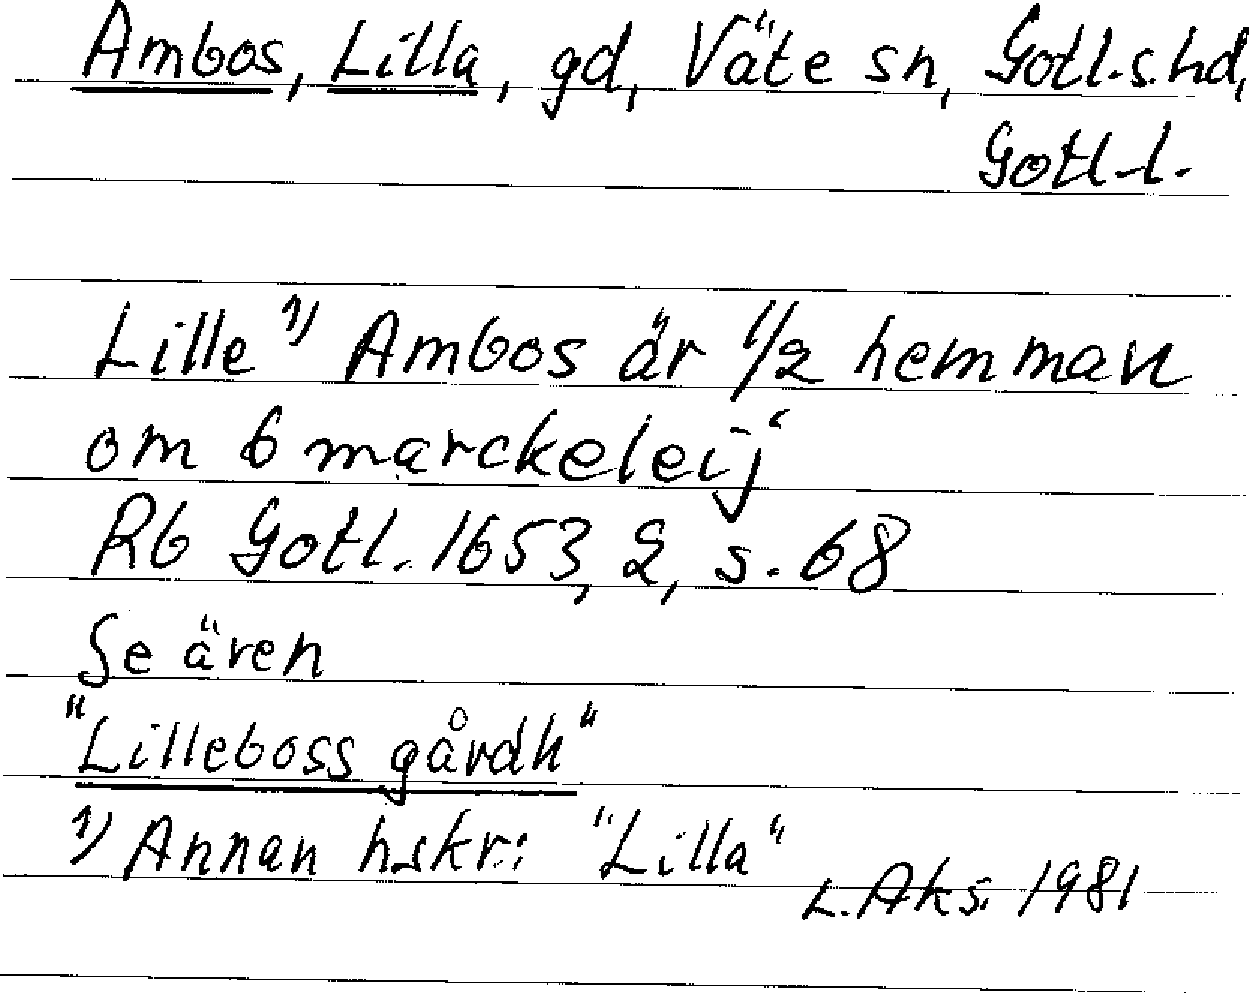 Ambos, Lilla, gd, Väte sn, Gotl.s. hd,
Gotl. l.
Lille 1) Ambos är 1/2 hemman
om 6 marckeleij
Rb Gotl. 1653, 2, s. 68
Se även
"Lilleboss gårdh"
1) Annan hskr: "Lilla"
L. Aks. 1981